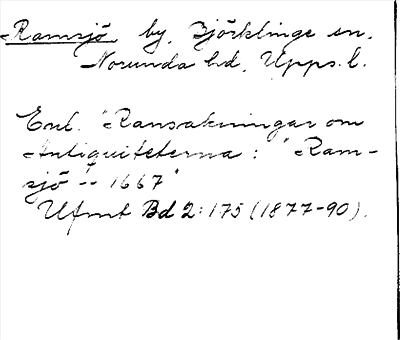 Ramsjö, by, Björklinge sn,
Norunda hd, Upps. l.
Enl. "Ransakningar om
Antiquiteterna: "Ram-
sjö" -- 1667"
Ufmt Bd 2:175 (1877-90).